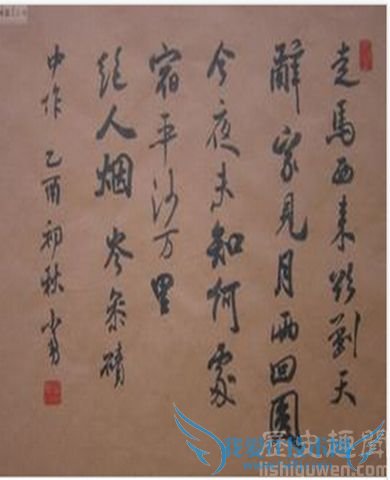 走馬西来欲到天
辭家見月两回圓
今夜未知何處
宿平沙万里
絕人烟 岑参磧
中作 乙酉初秋
歷史趣聞
lishiquwen.com